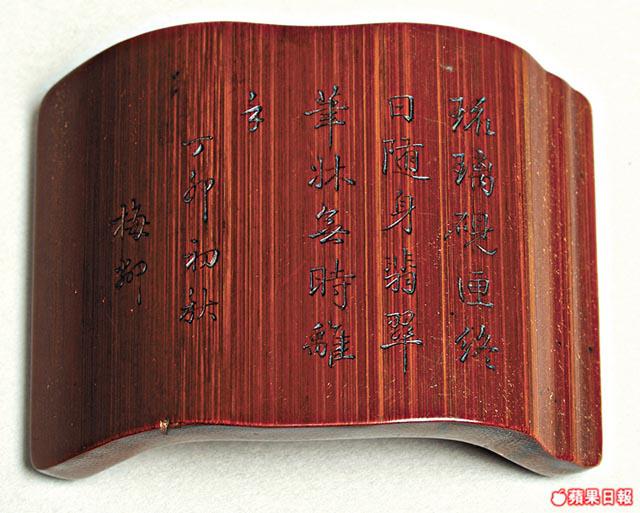 琉璃硯匣終
日随身翡翠
筆牀無時離
手
丁卯初秋
梅鄰
蘋果日報